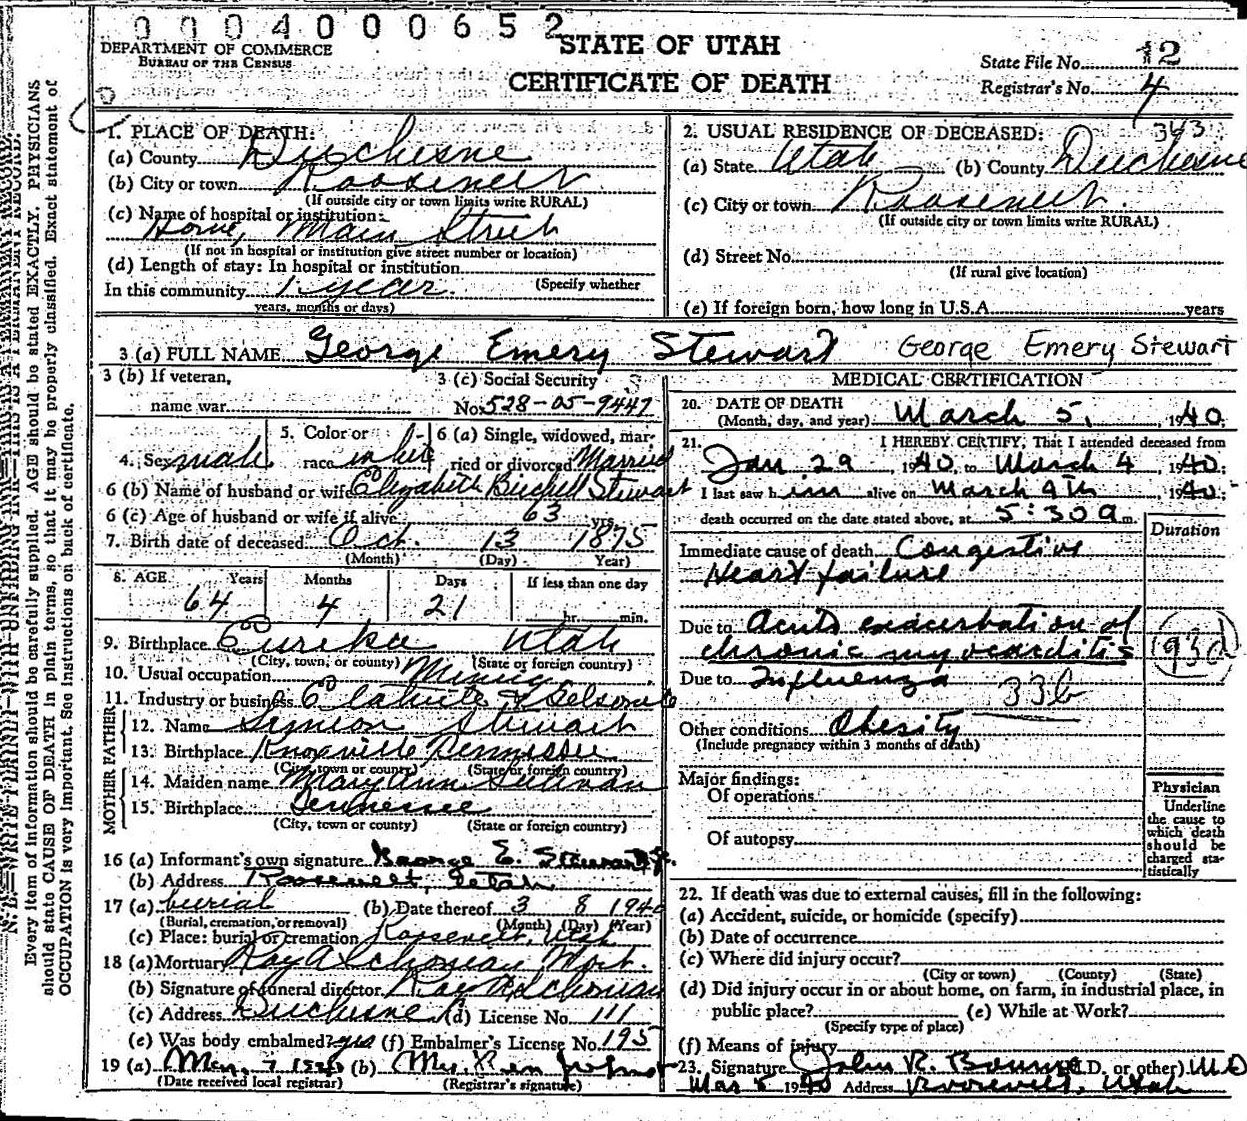 0004000652
DEPARTMENT OF COMMERCE
BUREAU OF THE CENSUS
STATE OF UTAH
CERTIFICATE OF DEATH
State File No. 12
Registrar's No. 4
N. B.—WRITE PLAINLY WITH UNFADING INK—THIS IS A PERMANENT RECORD.
Every item of information should be carefully supplied. AGE should be stated EXACTLY. PHYSICIANS
should state CAUSE OF DEATH in plain terms, so that it may be properly classified. Exact statement of
OCCUPATION is very important. See instructions on back of certificate.
1. PLACE OF DEATH:
(a) County Duchesne
(b) City or town Roosevelt
(If outside city or town limits write RURAL)
(c) Name of hospital or institution:
Home, Main Street
(If not in hospital or institution give street number or location)
(d) Length of stay: In hospital or institution
(Specify whether
In this community 1 year
years, months or days)
2. USUAL RESIDENCE OF DECEASED: 343
(a) State Utah (b) County Duchesne
(c) City or town Roosevelt
(If outside city or town limits write RURAL)
(d) Street No.
(If rural give location)
(e) If foreign born, how long in U.S.A. years
3 (a) FULL NAME George Emery Stewart George Emery Stewart
3 (b) If veteran,
name war
3 (c) Social Security
No. 528-05-9447
4. Sex male
5. Color or
race white
6 (a) Single, widowed, mar-
ried or divorced Married
6 (b) Name of husband or wife Elizabeth Birchell Stewart
6 (c) Age of husband or wife if alive 63 yrs.
7. Birth date of deceased Oct. 13 1875
(Month) (Day) (Year)
8. AGE Years Months Days If less than one day
64 4 21 hr. min.
9. Birthplace Eureka Utah
(City, town, or county) (State or foreign country)
10. Usual occupation Mining
11. Industry or business
FATHER
12. Name Simeon Stewart
13. Birthplace Knoxville Tennessee
(City, town or county) (State or foreign country)
MOTHER
14. Maiden name Mary Ann Sulivan
15. Birthplace Tennessee
(City, town or county) (State or foreign country)
16 (a) Informant's own signature George E. Stewart Jr.
(b) Address Roosevelt, Utah
17 (a) burial (b) Date thereof 3 8 1940
(Burial, cremation, or removal) (Month) (Day) (Year)
(c) Place: burial or cremation Roosevelt, Utah
18 (a) Mortuary Mort.
(b) Signature of funeral director
(c) Address Duchesne (d) License No. 111
(e) Was body embalmed? yes (f) Embalmer's License No. 195
19 (a) 7 1940 (b) Mrs.
(Date received local registrar) (Registrar's signature)
MEDICAL CERTIFICATION
20. DATE OF DEATH
(Month, day, and year) March 5, 1940
21. I HEREBY CERTIFY, That I attended deceased from
Jan 29 1940, to March 4, 1940;
I last saw him alive on March 4th, 1940;
death occurred on the date stated above, at 5:30 a m.
Duration
Immediate cause of death Congestive
Heart failure
Due to Acute exacerbation of
chronic myocarditis 93d
Due to Influenza 33b
Other conditions Obesity
(Include pregnancy within 3 months of death)
Major findings:
Of operations
Of autopsy
Physician
Underline
the cause to
which death
should be
charged sta-
tistically
22. If death was due to external causes, fill in the following:
(a) Accident, suicide, or homicide (specify)
(b) Date of occurrence
(c) Where did injury occur?
(City or town) (County) (State)
(d) Did injury occur in or about home, on farm, in industrial place, in
public place? (e) While at Work?
(Specify type of place)
(f) Means of injury
23. Signature John R. (M.D. or other) MD
Mar 5 1940 Address Roosevelt, Utah